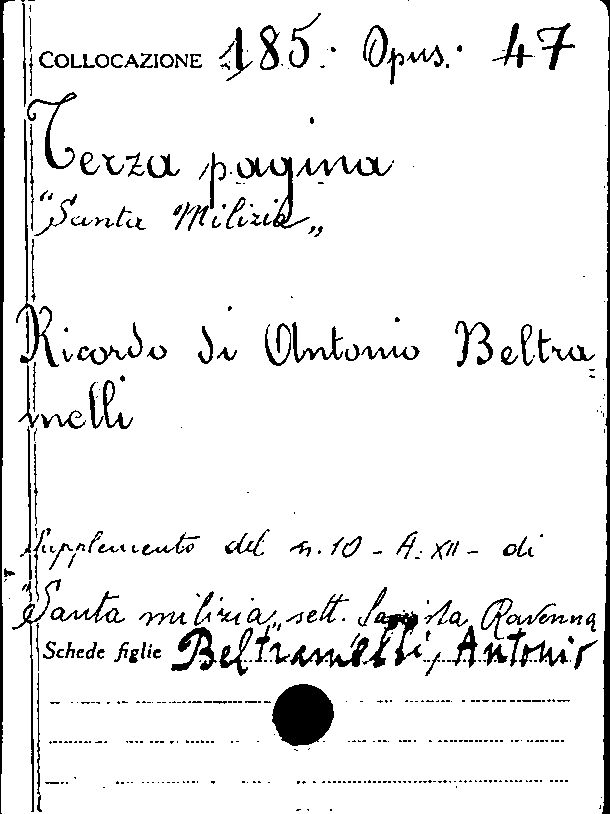 COLLOCAZIONE 185. Opus. 47
Terza pagina
"Santa Milizia„
Ricordo di Antonio Beltra
melli
Supplemento del n. 10 - A. XII - di
"Santa milizia„ sett. Ravenna
Schede figlie Beltramelli, Antonio